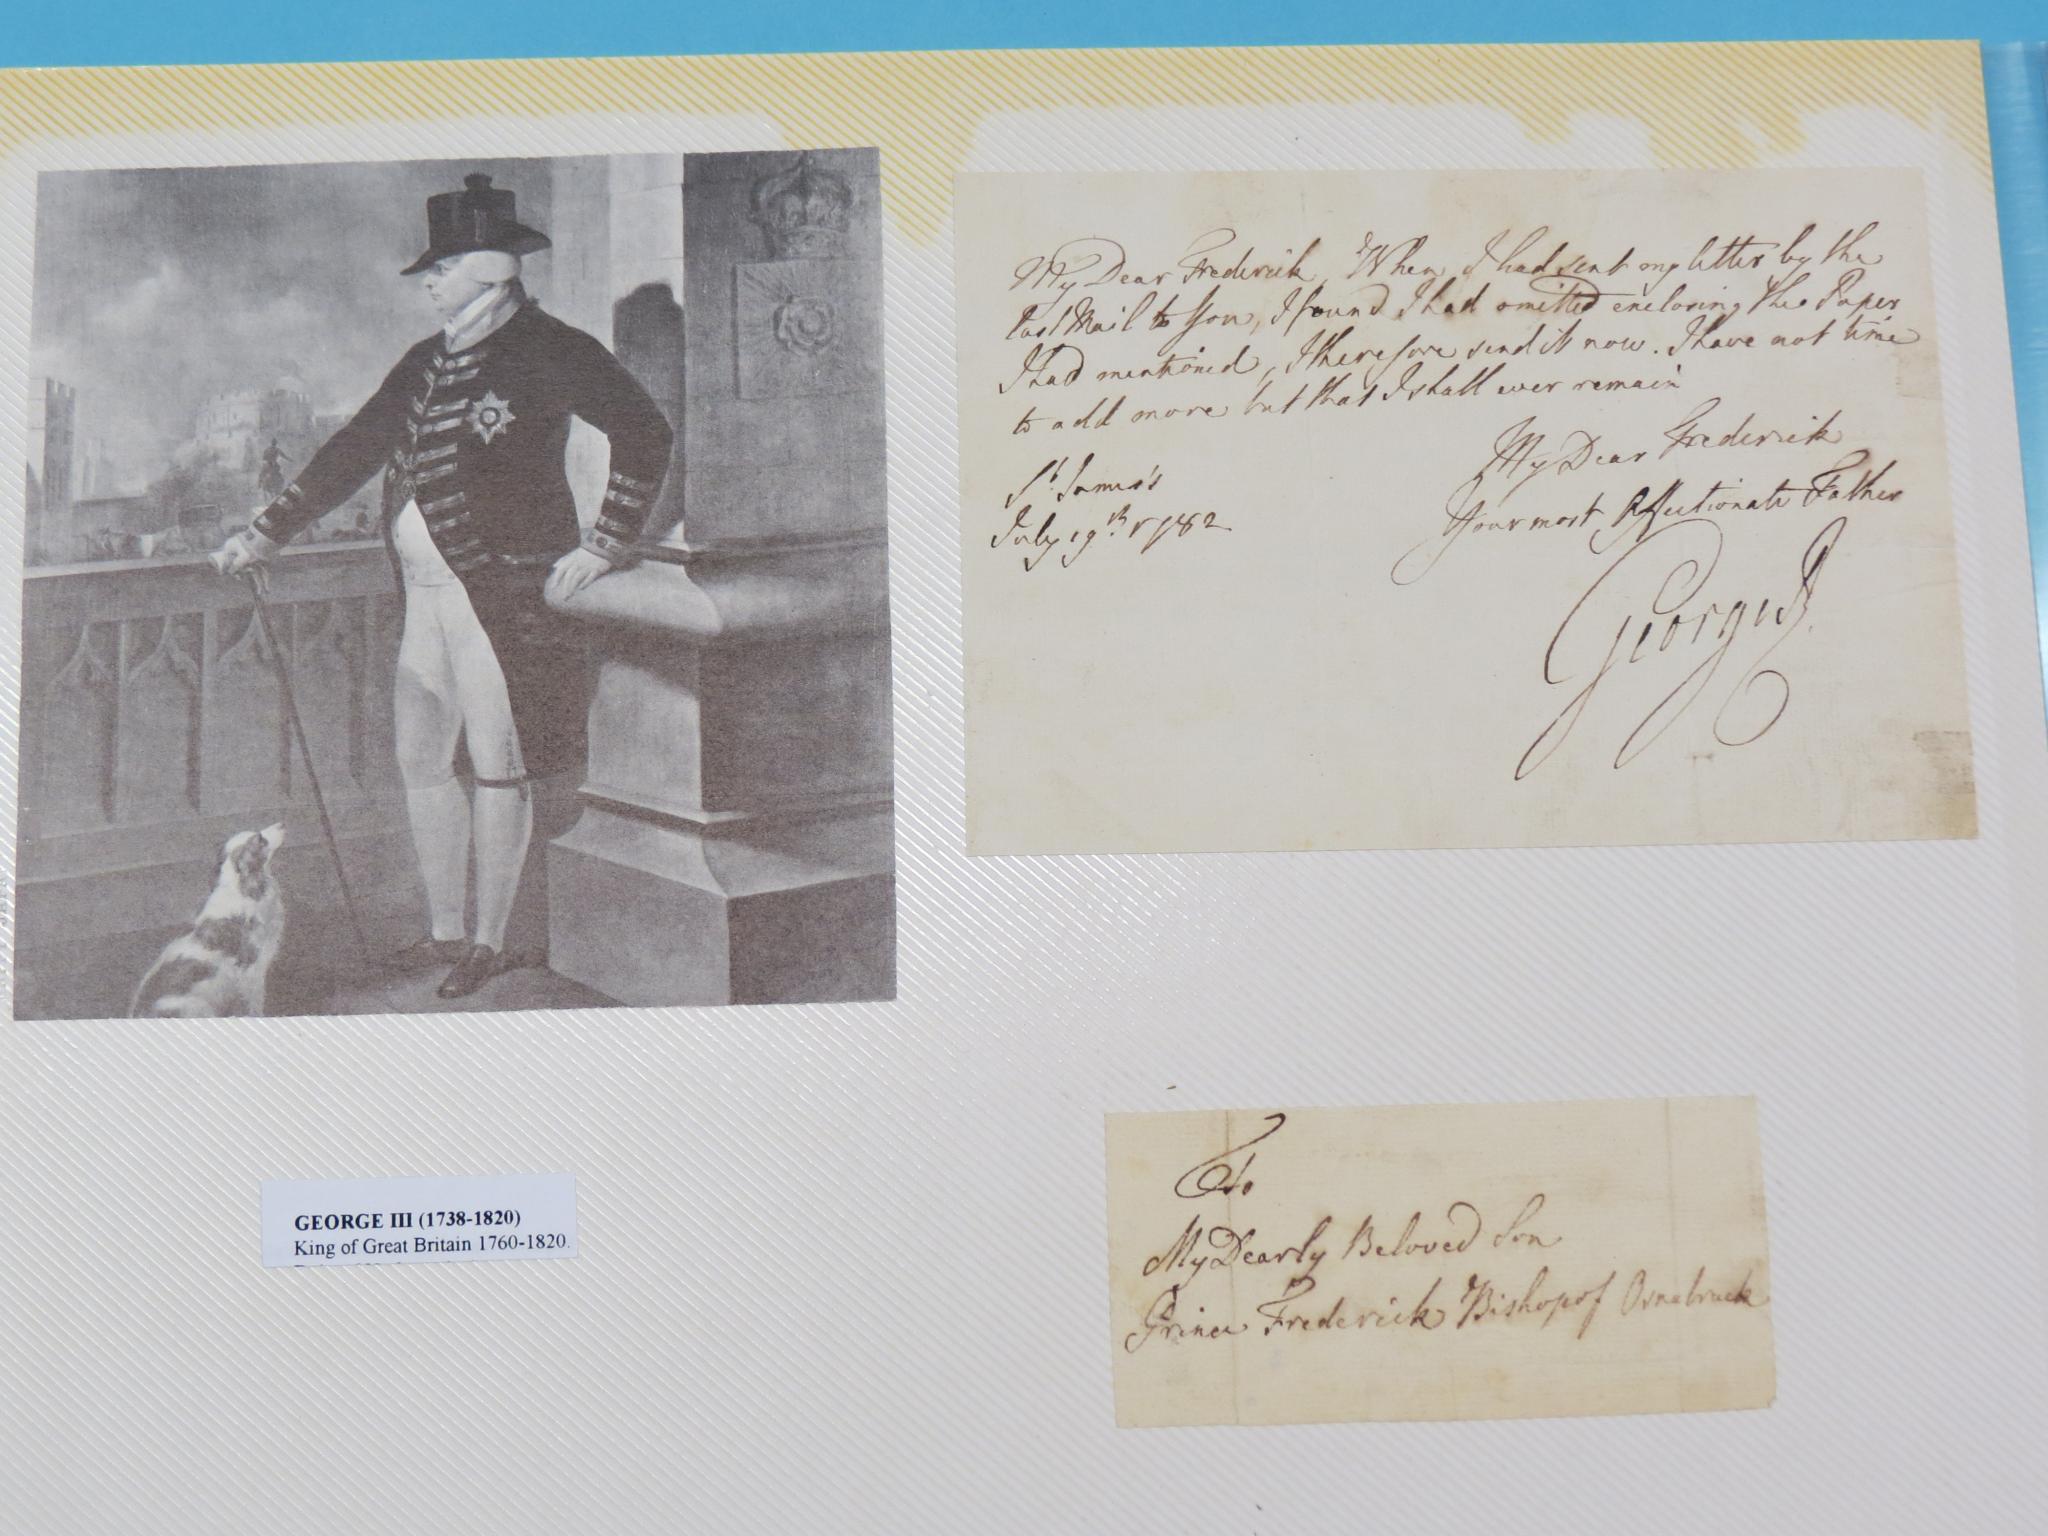 My Dear Frederick, When I had sent my letter by the
last Mail to You, I found I had omitted enclosing the Paper
I had mentioned, I therefore send it now. I have not time
to add more but that I shall ever remain
My Dear Frederick
Your most Affectionate Father
St. James's
July 19th. 1782
George R.
To
My Dearly Beloved Son
Prince Frederick Bishop of Osnabruck
GEORGE III (1738-1820)
King of Great Britain 1760-1820.